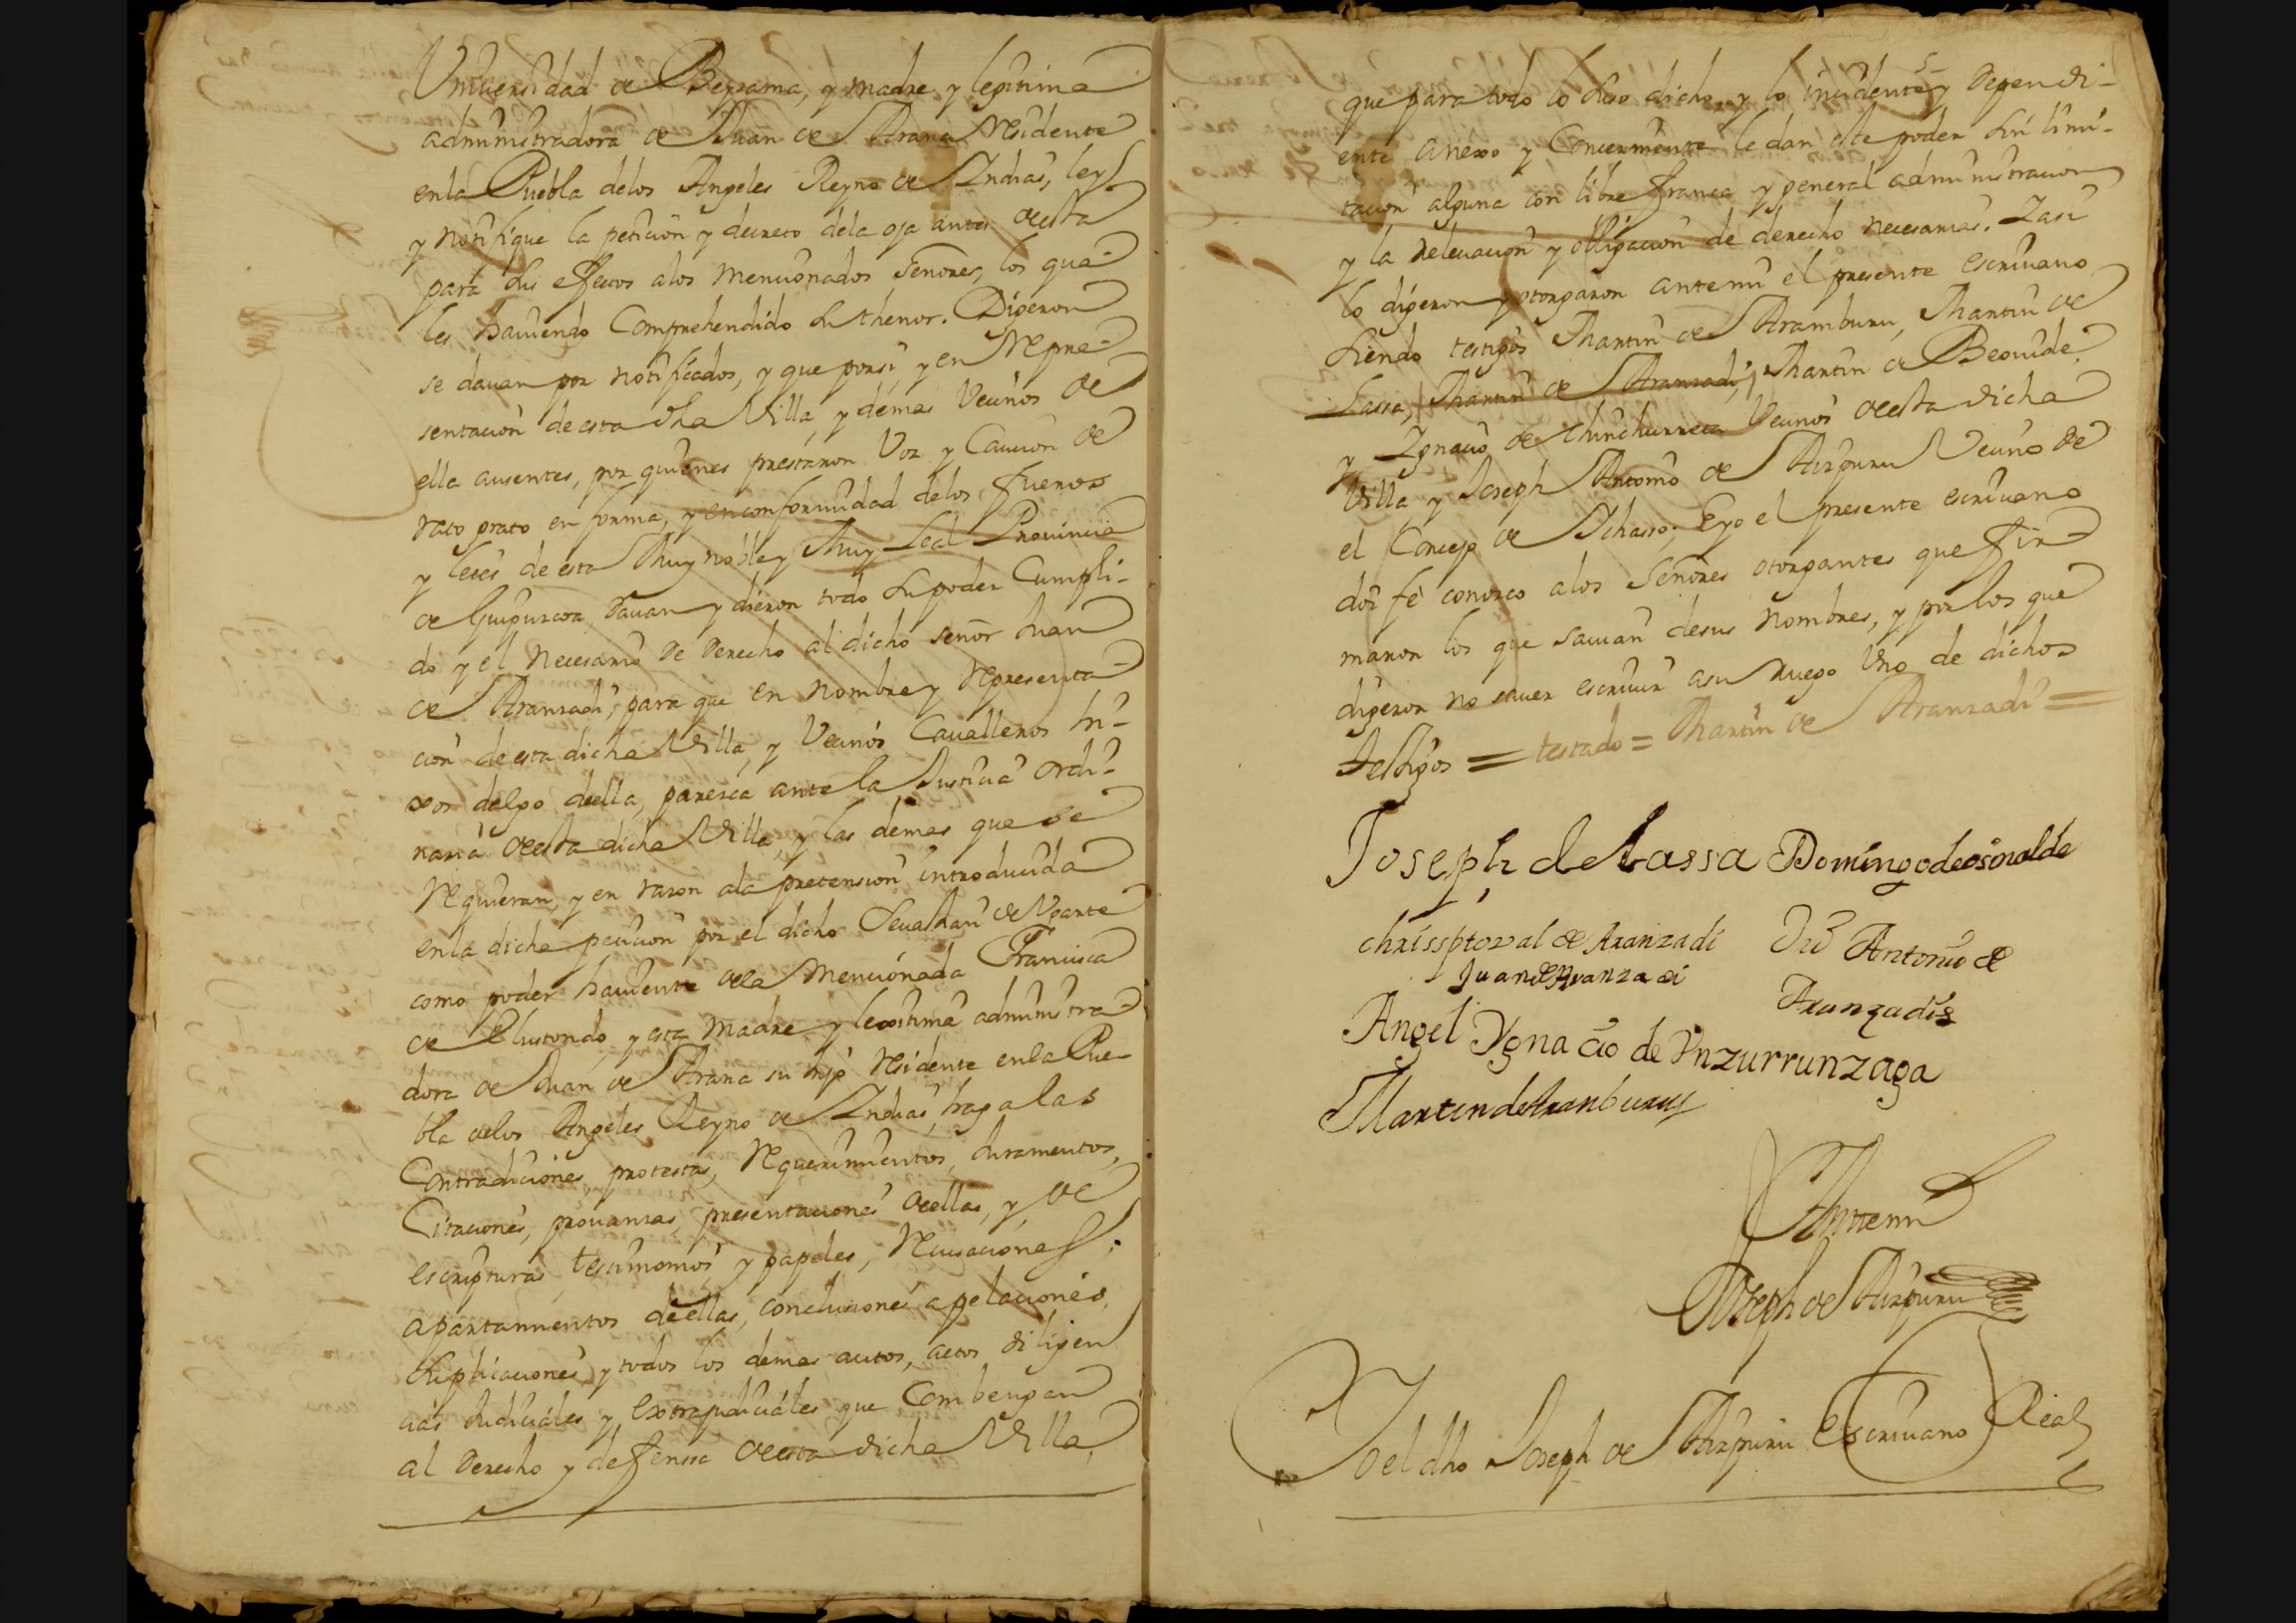 Vniuersidad de Beyzama, y madre y legitima
administradora de Juan de Arana Residente
enla Puebla delos Angeles Reyno de Indias, ley
y notifique la peticion y decreto dela oja antes desta
para sus efectos alos mencionados señores, los qua-
les hauiendo Comprehendido su thenor. Digeron
se dauan por notificados, y que porsi, y en Repre-
sentacion de esta dha Villa, y demas Vecinos de
ella ausentes, por quienes prestaron Voz y Caucion de
rato grato en forma, y en conformidad delos fueros
y leies de esta Muy noble y Muy Leal Prouincia
de Guipuzcoa, Dauan y dieron todo su poder Cumpli-
do y el necesario De Derecho al dicho señor Juan
de Aranzadi, para que en nombre y Representa-
cion de esta dicha Villa, y Vecinos Caualleros hi-
xos dalgo de ella, parezca ante la Justicia ordi-
naria desta dicha Villa, y las demas que se
Requieran, y en razon ala pretension introducida
enla dicha peticion por el dicho Seuastian de Vgarte
como poder hauiente dela mencionada Francisca
de Elustondo y esta madre y lexitima administra-
dora de Juan de Arana su hijo Residente enla Pue-
bla delos Angeles Reyno de Indias, haga las
Contradiciones, protestas, Requerimientos, Juramentos,
Citaciones, prouanzas, presentaciones dellas, y de
escripturas, testimonios, y papeles, Recusaciones,
apartamientos de ellas, conclusiones apelaciones,
suplicaciones, y todos los demas autos, actos diligen
cias Judiciales y extrajudiciales que Combengan
al Derecho y defensa de esta dicha Villa,
que para todo lo suso dicho, y lo incidente y Dependi-
ente anexo y Concerniente le dan este poder sin limi-
tacion alguna con libre franca y general administracion
y la releuacion y obligacion de derecho necesarias. Y asi
lo digeron y otorgaron antemi el presente escriuano
siendo testigos Martin de Aramburu, Martin de
Lassa, Martin de Aranzadi, Martin de Beouide,
y Ygnacio de Chinchurreta Vecinos desta dicha
Villa y Joseph Antonio de Aizpuru Vecino de
el Concejo de Ichasso; E yo el presente escriuano
doi fe conozco alos Señores otorgantes que fir-
maron los que sauian de sus nombres, y por los que
digeron no sauer escriuir asu ruego Vno de dichos
testigos = testado = Martin de Aranzadi =
Joseph de Lassa Domingo de osinalde
chrissptoval de Aranzadi Antonio de
Juan de Aranzadi Aranzadi
Angel Ygnacio de Ynzurrunzaga
Martin de Aranburu
Antemi
Joseph de Aizpuru
Yo el dho Joseph de Aizpuru Escriuano Real